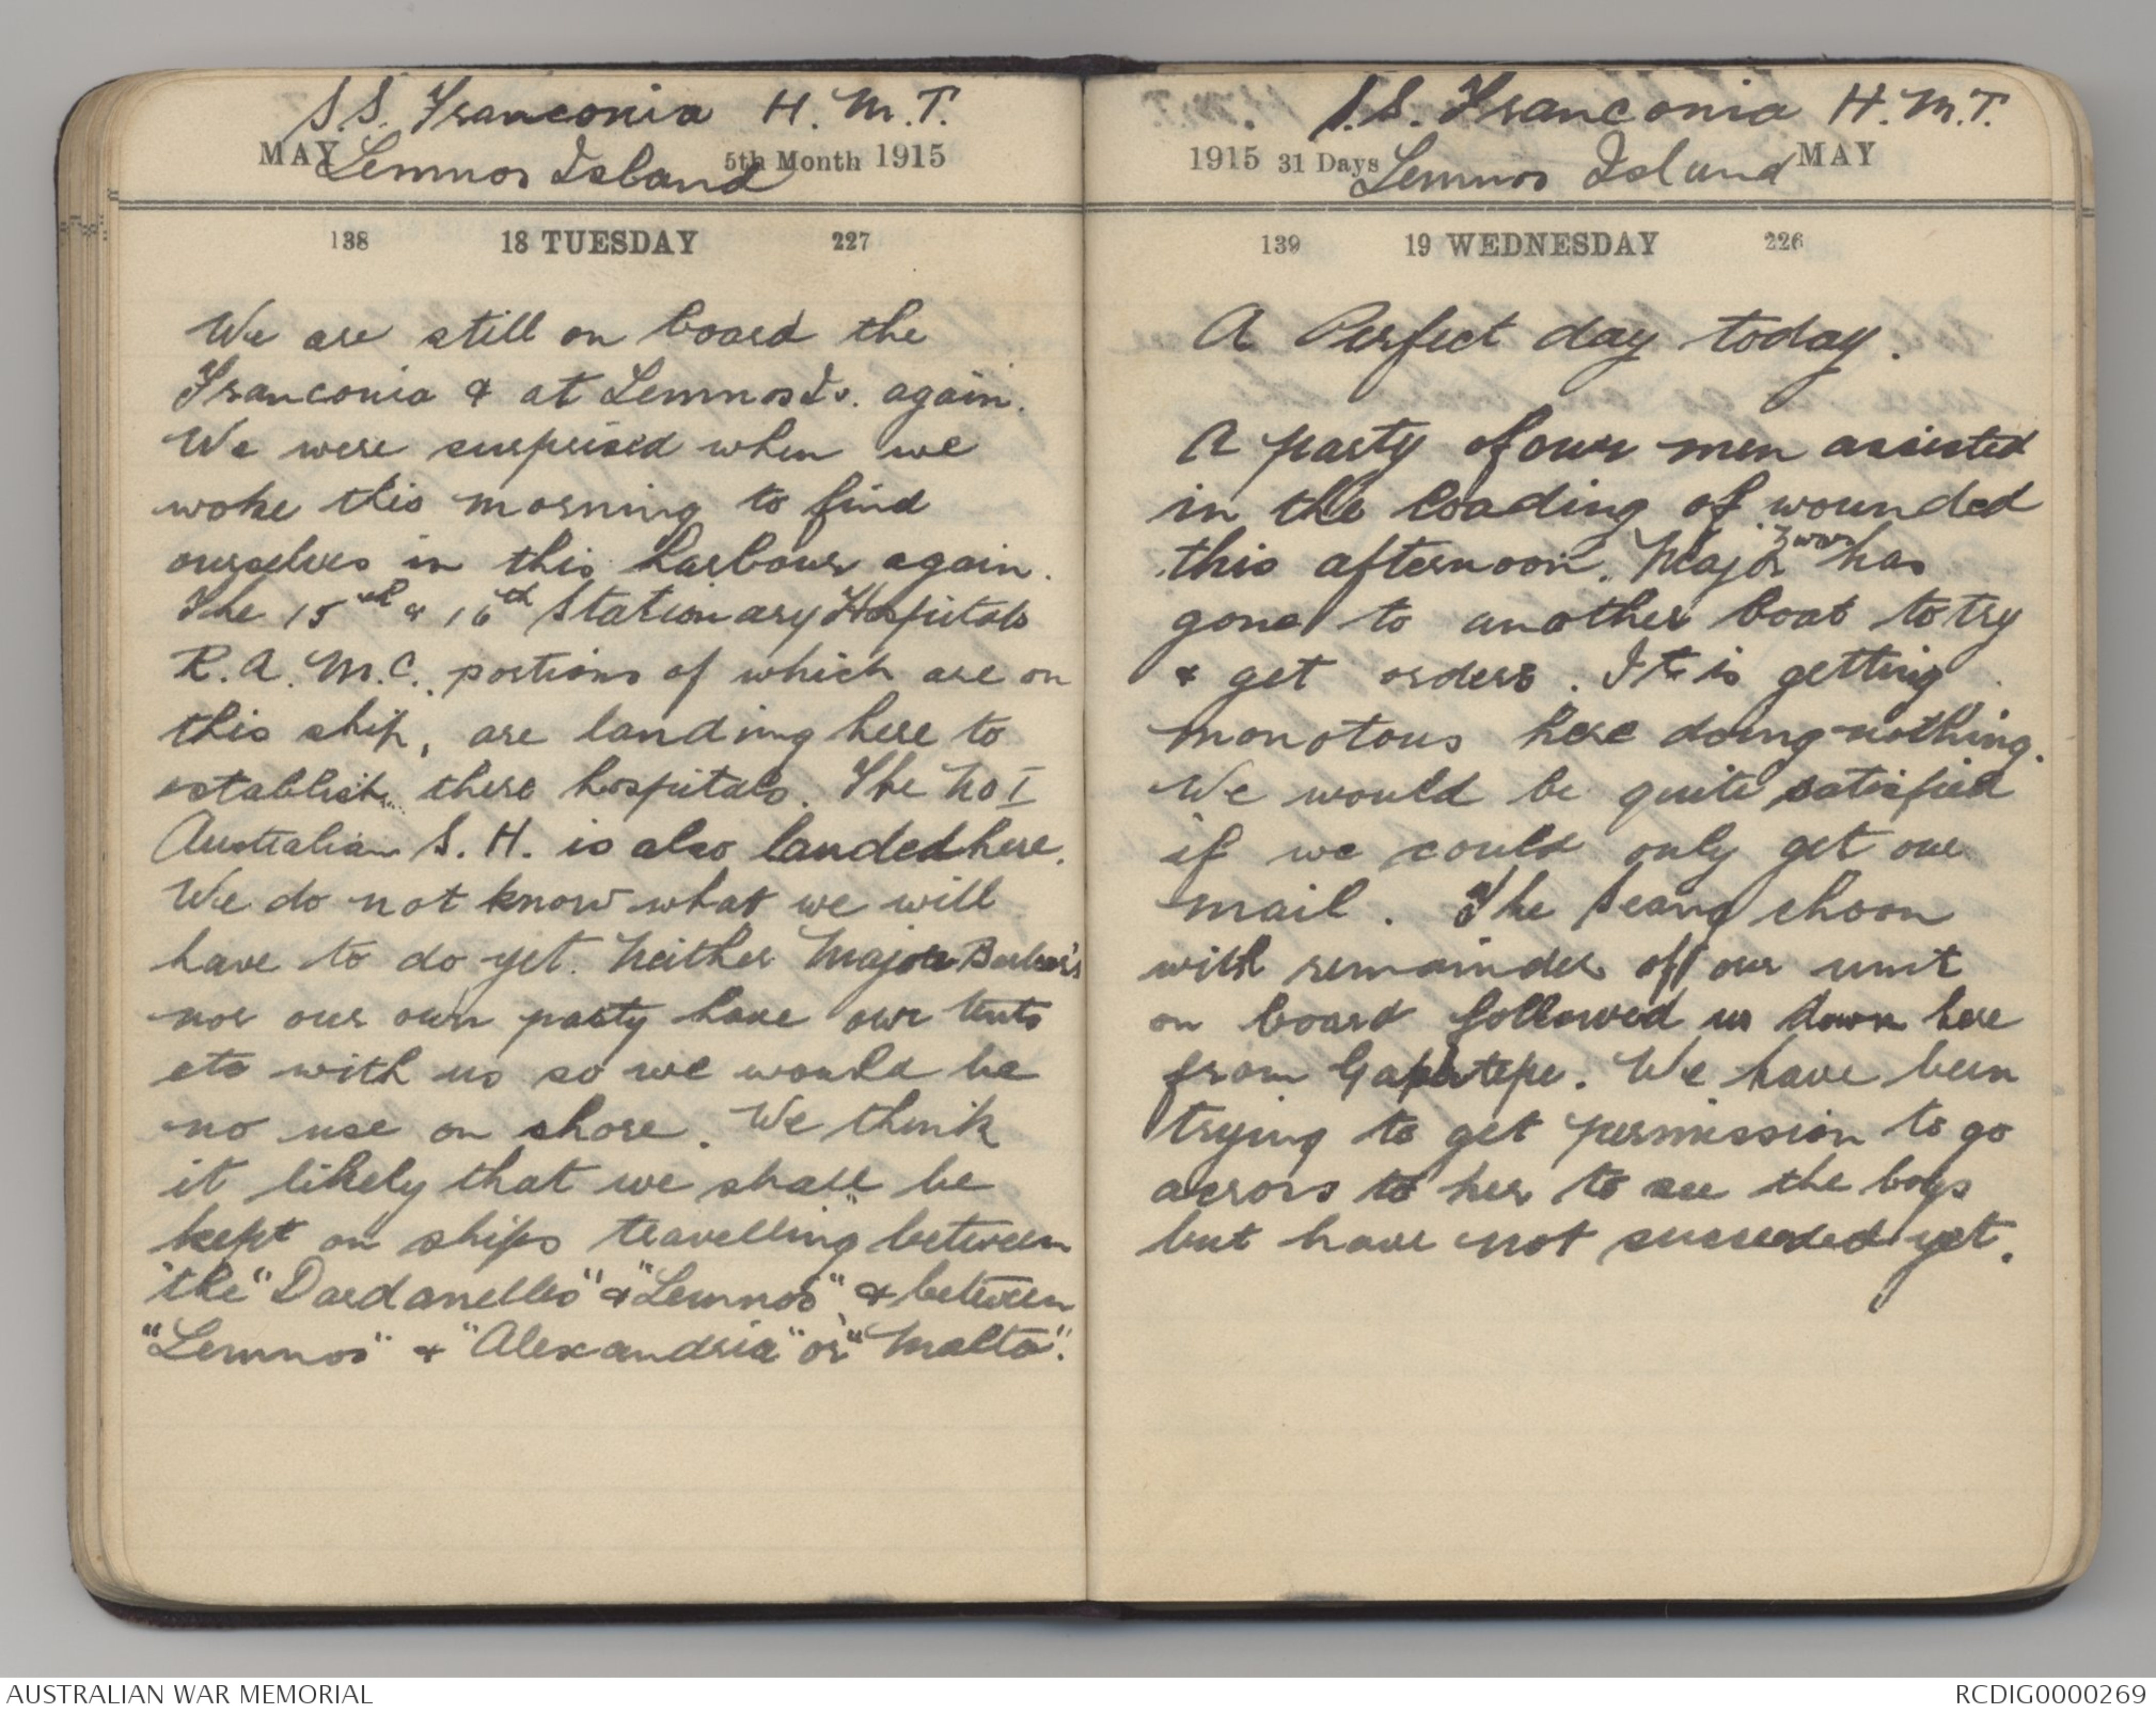 S.S. Franconia H.M.T.
MAY Lemnos Island 5th Month 1915
138 18 TUESDAY 227
We are still on board the
Franconia & at Lemnos Is. again.
We were surprised when we
woke this morning to find
ourselves in this harbour again.
The 15th & 16th Stationary Hospitals
R.A.M.C. portions of which are on
this ship, are landing here to
establish these hospitals. The No I
Australian S. H. is also landed here.
We do not know what we will
have to do yet. Neither Major Barber's
nor our own party have our tents
etc with us so we would be
no use on shore. We think
it likely that we shall be
kept on ships travelling between
the "Dardanelles" & "Lemnos" & between
"Lemnos" & "Alexandria" or "Malta".
S.S. Franconia H.M.T.
1915 31 Days Lemnos Island MAY
139 19 WEDNESDAY 226
A Perfect day today.
A party of our men assisted
in the loading of wounded
this afternoon. Major has
gone to another boat to try
& get orders. It is getting
monotous here doing nothing.
We would be quite satisfied
if we could only get our
mail. The Seang choon
with remainder off our unit
on board followed us down here
from Gabatepe. We have been
trying to get permission to go
across to her to see the boys
but have not succeeded yet.
AUSTRALIAN WAR MEMORIAL
RCDIG0000269